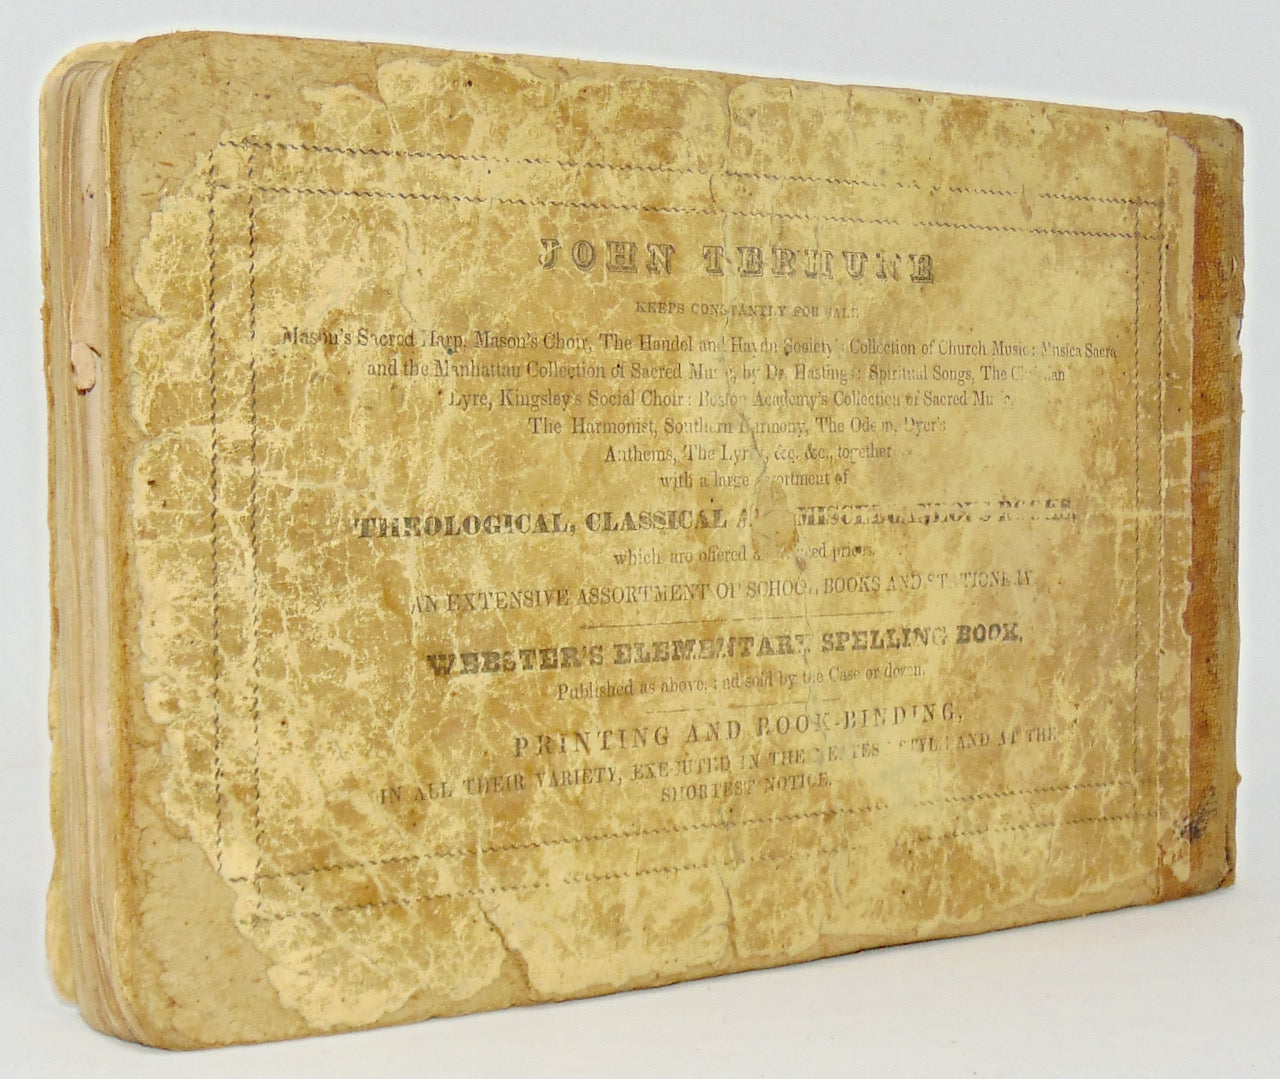 JOHN TERHUNE
KEEPS CONSTANTLY FOR SALE
Mason's Sacred Harp, Mason's Choir, The Handel and Haydn Society's Collection of Church Music; Musica Sacra
and the Manhattan Collection of Sacred Music, by Dr. Hastings; Spiritual Songs, The Christian
Lyre, Kingsley's Social Choir; Boston Academy's Collection of Sacred Music,
The Harmonist, Southern Harmony, The Odeon, Dyer's
Anthems, The Lyra, &c. &c., together
with a large assortment of
THEOLOGICAL, CLASSICAL AND MISCELLANEOUS BOOKS,
which are offered at reduced prices.
AN EXTENSIVE ASSORTMENT OF SCHOOL BOOKS AND STATIONERY.
WEBSTER'S ELEMENTARY SPELLING BOOK,
Published as above, and sold by the Case or dozen.
PRINTING AND BOOK-BINDING,
IN ALL THEIR VARIETY, EXECUTED IN THE NEATEST STYLE AND AT THE
SHORTEST NOTICE.